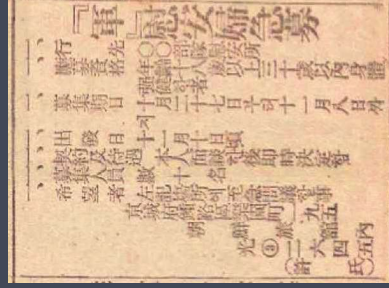 『軍』慰安婦急募
一、行先 ○○部隊慰安所
一、應募資格 年齡十八歲以上三十歲以內身體强健者
一、募集期日 十月二十七日부터十一月八日까지
一、出發日 十一月十日頃
一、契約及待遇 本人面談後即時決定함
一、募集人員 數十名
一、希望者 左記場所에至急問議할事
京城府鍾路區樂園町一九五
朝鮮旅館內
光③二六四五
(許氏)